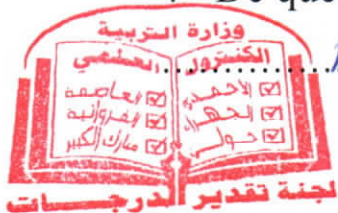 De que
وزارة التربية
الكنترول العلمي
الأحمدي
الجهراء
حولي
العاصمة
الفروانية
مبارك الكبير
لجنة تقدير الدرجات